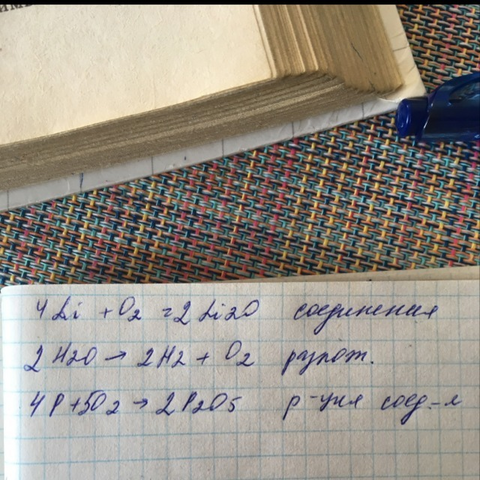 4Li + O2 = 2Li2O соединения
2H2O → 2H2 + O2
4P + 5O2 → 2P2O5 р-ция соед-я